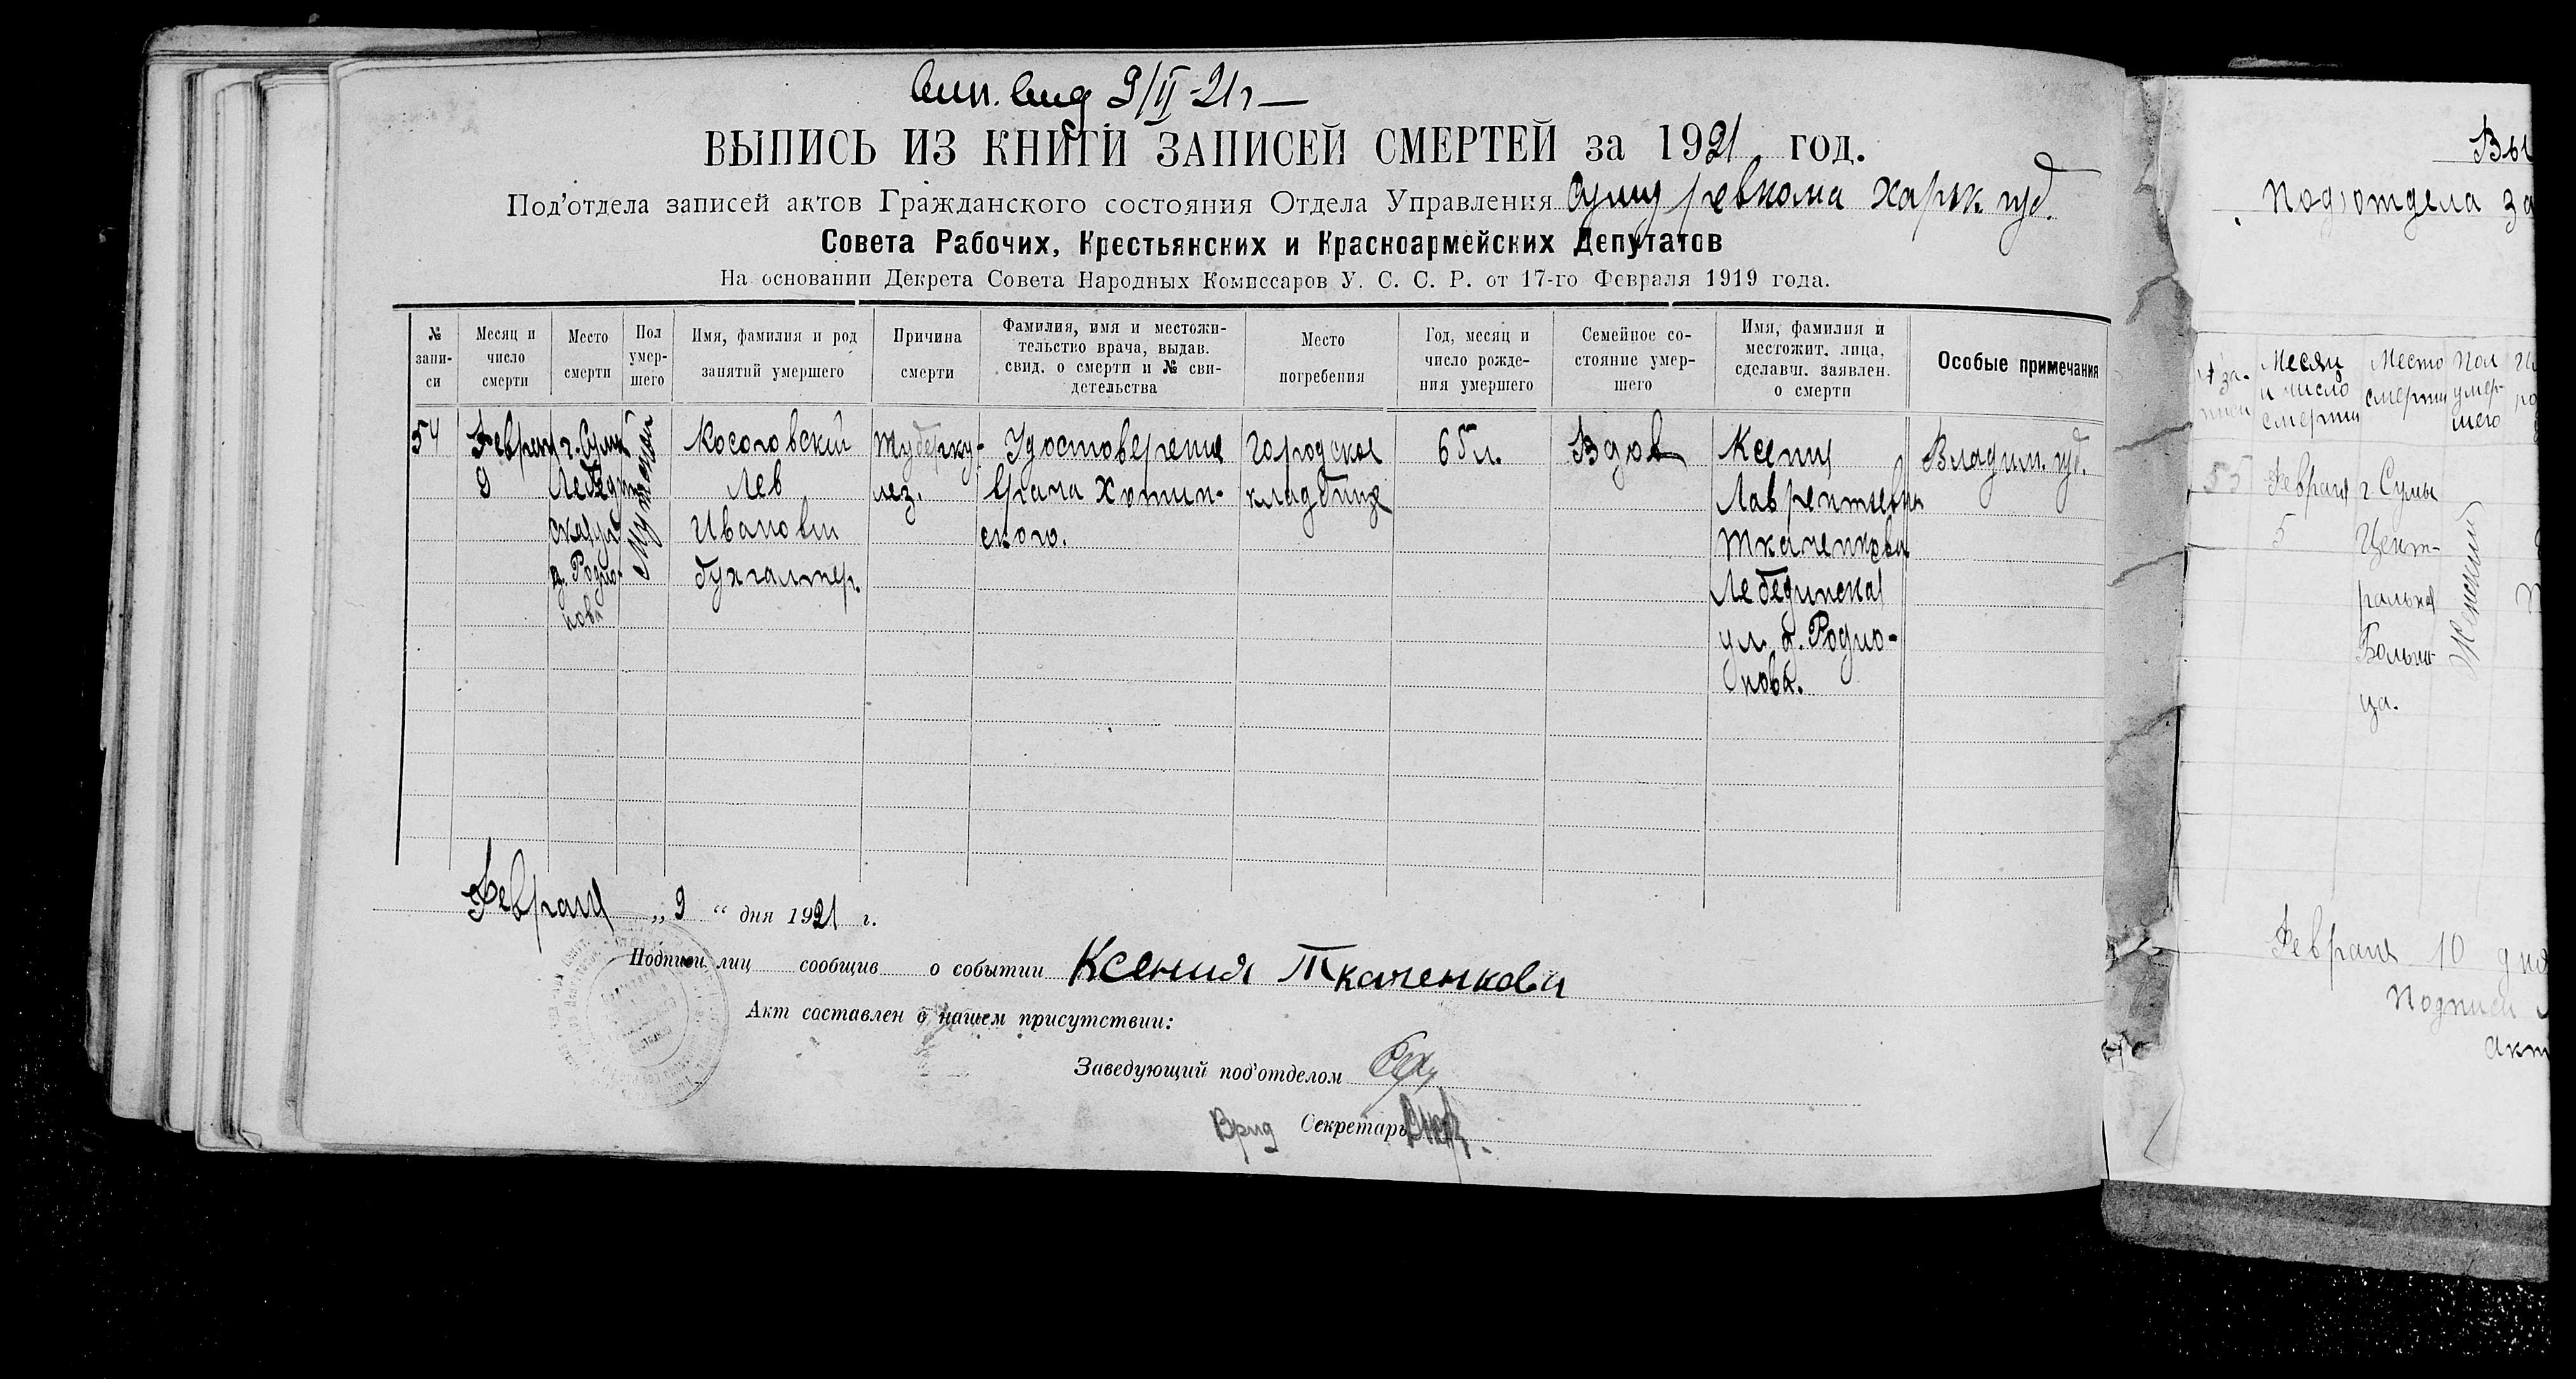 9/II-21 г
ВЫПИСЬ ИЗ КНИГИ ЗАПИСЕЙ СМЕРТЕЙ за 1921 год.
Под'отдела записей актов Гражданского состояния Отдела Управления Сумуревкома Харьк. губ.
Совета Рабочих, Крестьянских и Красноармейских Депутатов
На основании Декрета Совета Народных Комиссаров У. С. С. Р. от 17-го Февраля 1919 года.
№ запи-
си
Месяц и
число
смерти
Место
смерти
Пол
умер-
шего
Имя, фамилия и род
занятий умершего
Причина
смерти
Фамилия, имя и местожи-
тельство врача, выдав.
свид. о смерти и № сви-
детельства
Место
погребения
Год, месяц и
число рожде-
ния умершего
Семейное со-
стояние умер-
шего
Имя, фамилия и
местожит. лица,
сделавш. заявлен.
о смерти
Особые примечания
54
Февраля
9
г. Сумы
Лебедин
ская ул
д. Родио-
нова
Мужской
Косоговский
Лев
Иванович
бухгалтер.
Туберку-
лез.
Удостоверение
врача Хотин-
ского.
Городское
кладбище
65 л.
Вдов
Ксения
Лаврентьевна
Ткаченкова
Лебединская
ул. д. Родио-
нова.
Владим. губ.
Февраля „ 9 “ дня 1921 г.
Подписи лиц сообщив о событии Ксения Ткаченкова
Акт составлен в нашем присутствии:
Заведующий под'отделом
Врид Секретарь
Вы
Под'отдела за
№ за-
писи
Месяц
и число
смерти
Место
смерти
Пол
умер-
шего
55
Февраля
5
г. Сумы
Цент-
ральная
Больни-
ца.
Женский
Февраля 10 дня
Подписи
Акт